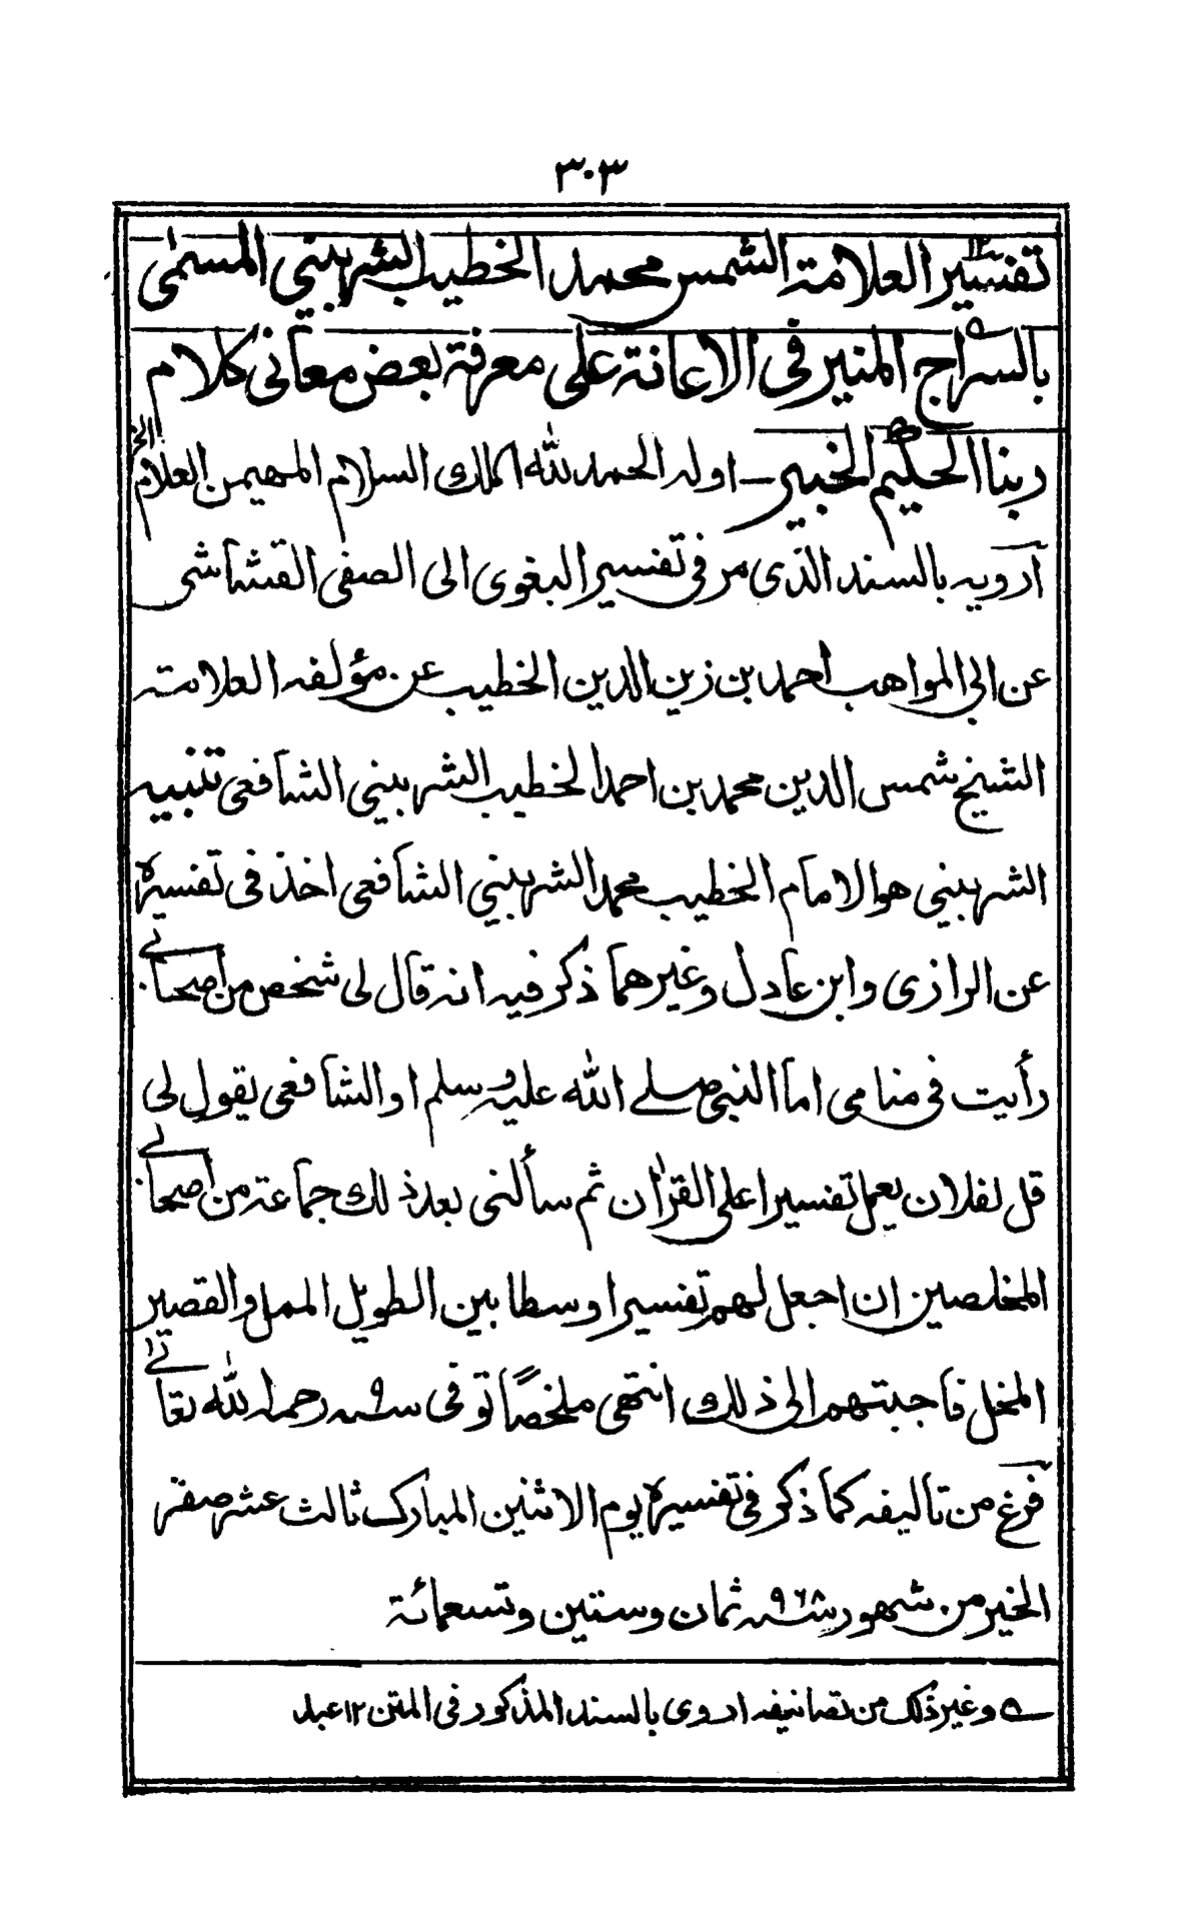 ٣٠٣
تفسير العلامة الشمس محمد الخطيب الشربيني المسمى
بالسراج المنير في الاعانة على معرفة بعض معاني كلام
ربنا الحكيم الخبير ــ اوله الحمد لله الملك السلام المهيمن العلام الخ
آرويه بالسند الذى مر فى تفسير البغوى الى الصفى القشاشى
عن ابي المواهب احمد بن زين الدين الخطيب عن مؤلفه العلامة
الشيخ شمس الدين محمد بن احمد الخطيب الشربيني الشافعى تنبيه
الشربيني هو الامام الخطيب محمد الشربيني الشافعى اخذ فى تفسيره
عن الرازى وابن عادل وغيرهما ذكر فيه انه قال لى شخص من اصحابي
رأيت فى منامى اما النبي صلے الله عليه وسلم او الشافعى يقول لى
قل لفلان يعمل تفسيرا على القرآن ثم سألنى بعد ذلك جماعة من اصحابي
المخلصين ان اجعل لهم تفسيرا وسطا بين الطويل الممل والقصير
المخل فاجبتهم الى ذلك انتهى ملخصًا توفى سنه رحمه الله تعالے
فرغ من تاليفه كما ذكر فى تفسيره يوم الاثنين المبارك ثالث عشر صفر
الخير من شهور سنه ٩٦٨ ثمان وستين وتسعمائة
ے وغير ذلك من تصانيفه اروى بالسند المذكور فى المتن ١٢ عبد